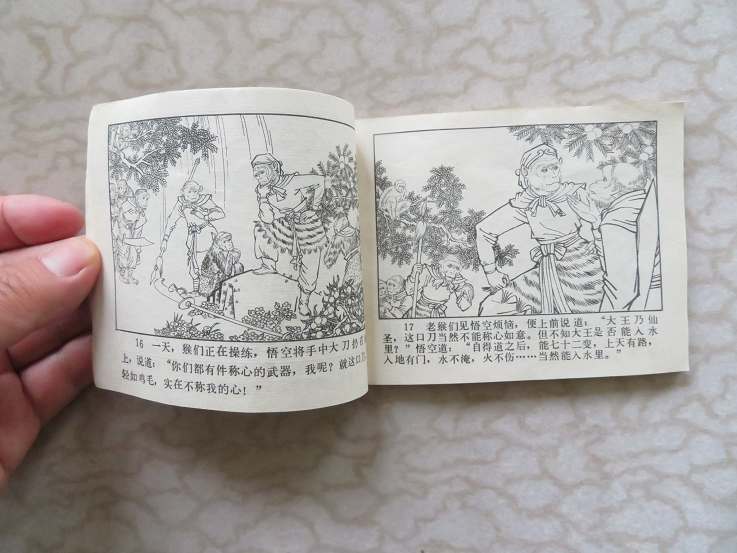 16 一天，猴们正在操练，悟空将手中大刀扑在
上，说道：“你们都有件称心的武器，我呢？就这口刀
轻如鸡毛，实在不称我的心！”
17 老猴们见悟空烦恼，便上前说道：“大王乃仙
圣，这口刀当然不能称心如意。但不知大王是否能入水
里？”悟空道：“自得道之后，能七十二变，上天有路，
入地有门，水不淹，火不伤……当然能入水里。”